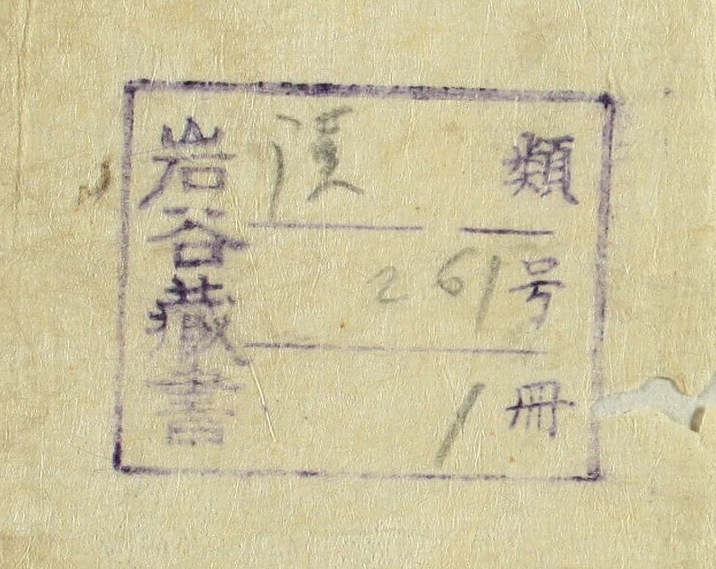 類 漢
号 261
冊 1
岩谷蔵書